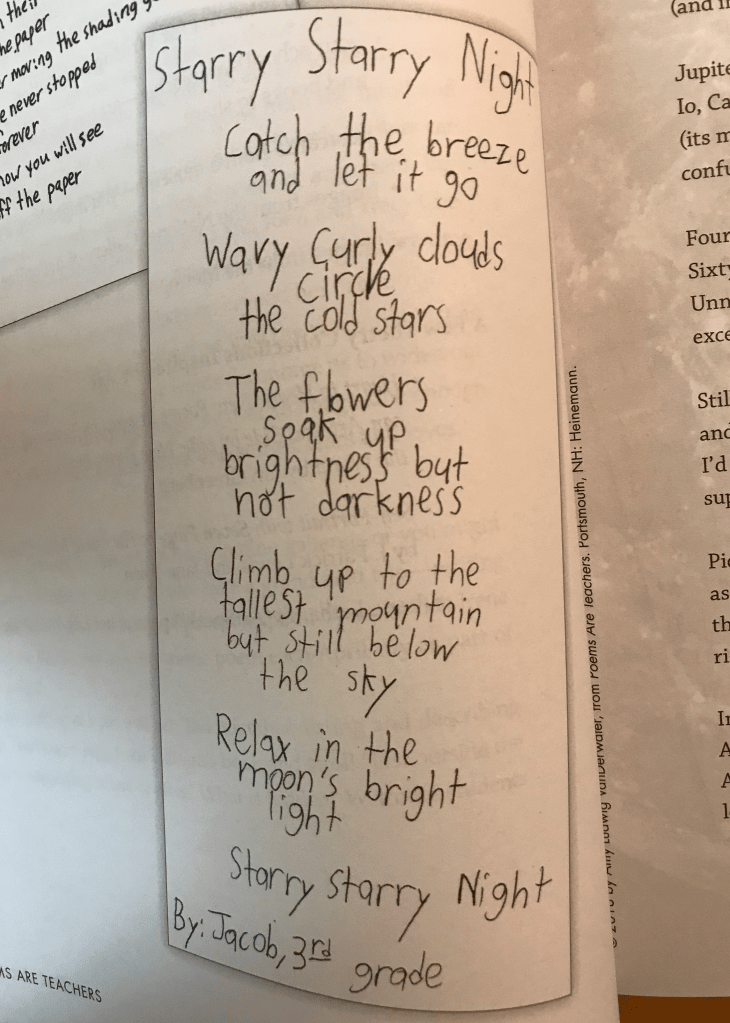 their
the paper
moving the shading
never stopped
forever
now you will see
off the paper
Starry Starry Night
Catch the breeze
and let it go
Wavy Curly clouds
circle
the cold stars
The flowers
soak up
brightness but
not darkness
Climb up to the
tallest mountain
but still below
the sky
Relax in the
moon's bright
light
Starry Starry Night
By: Jacob, 3rd
grade
MS ARE TEACHERS
from Poems Are Teachers. Portsmouth, NH: Heinemann.
(and
Jupite
Io, Ca
(its m
confu
Four
Sixty
Unn
exce
Still
and
I'd
sup
Pic
as
th
ri
In
A
A